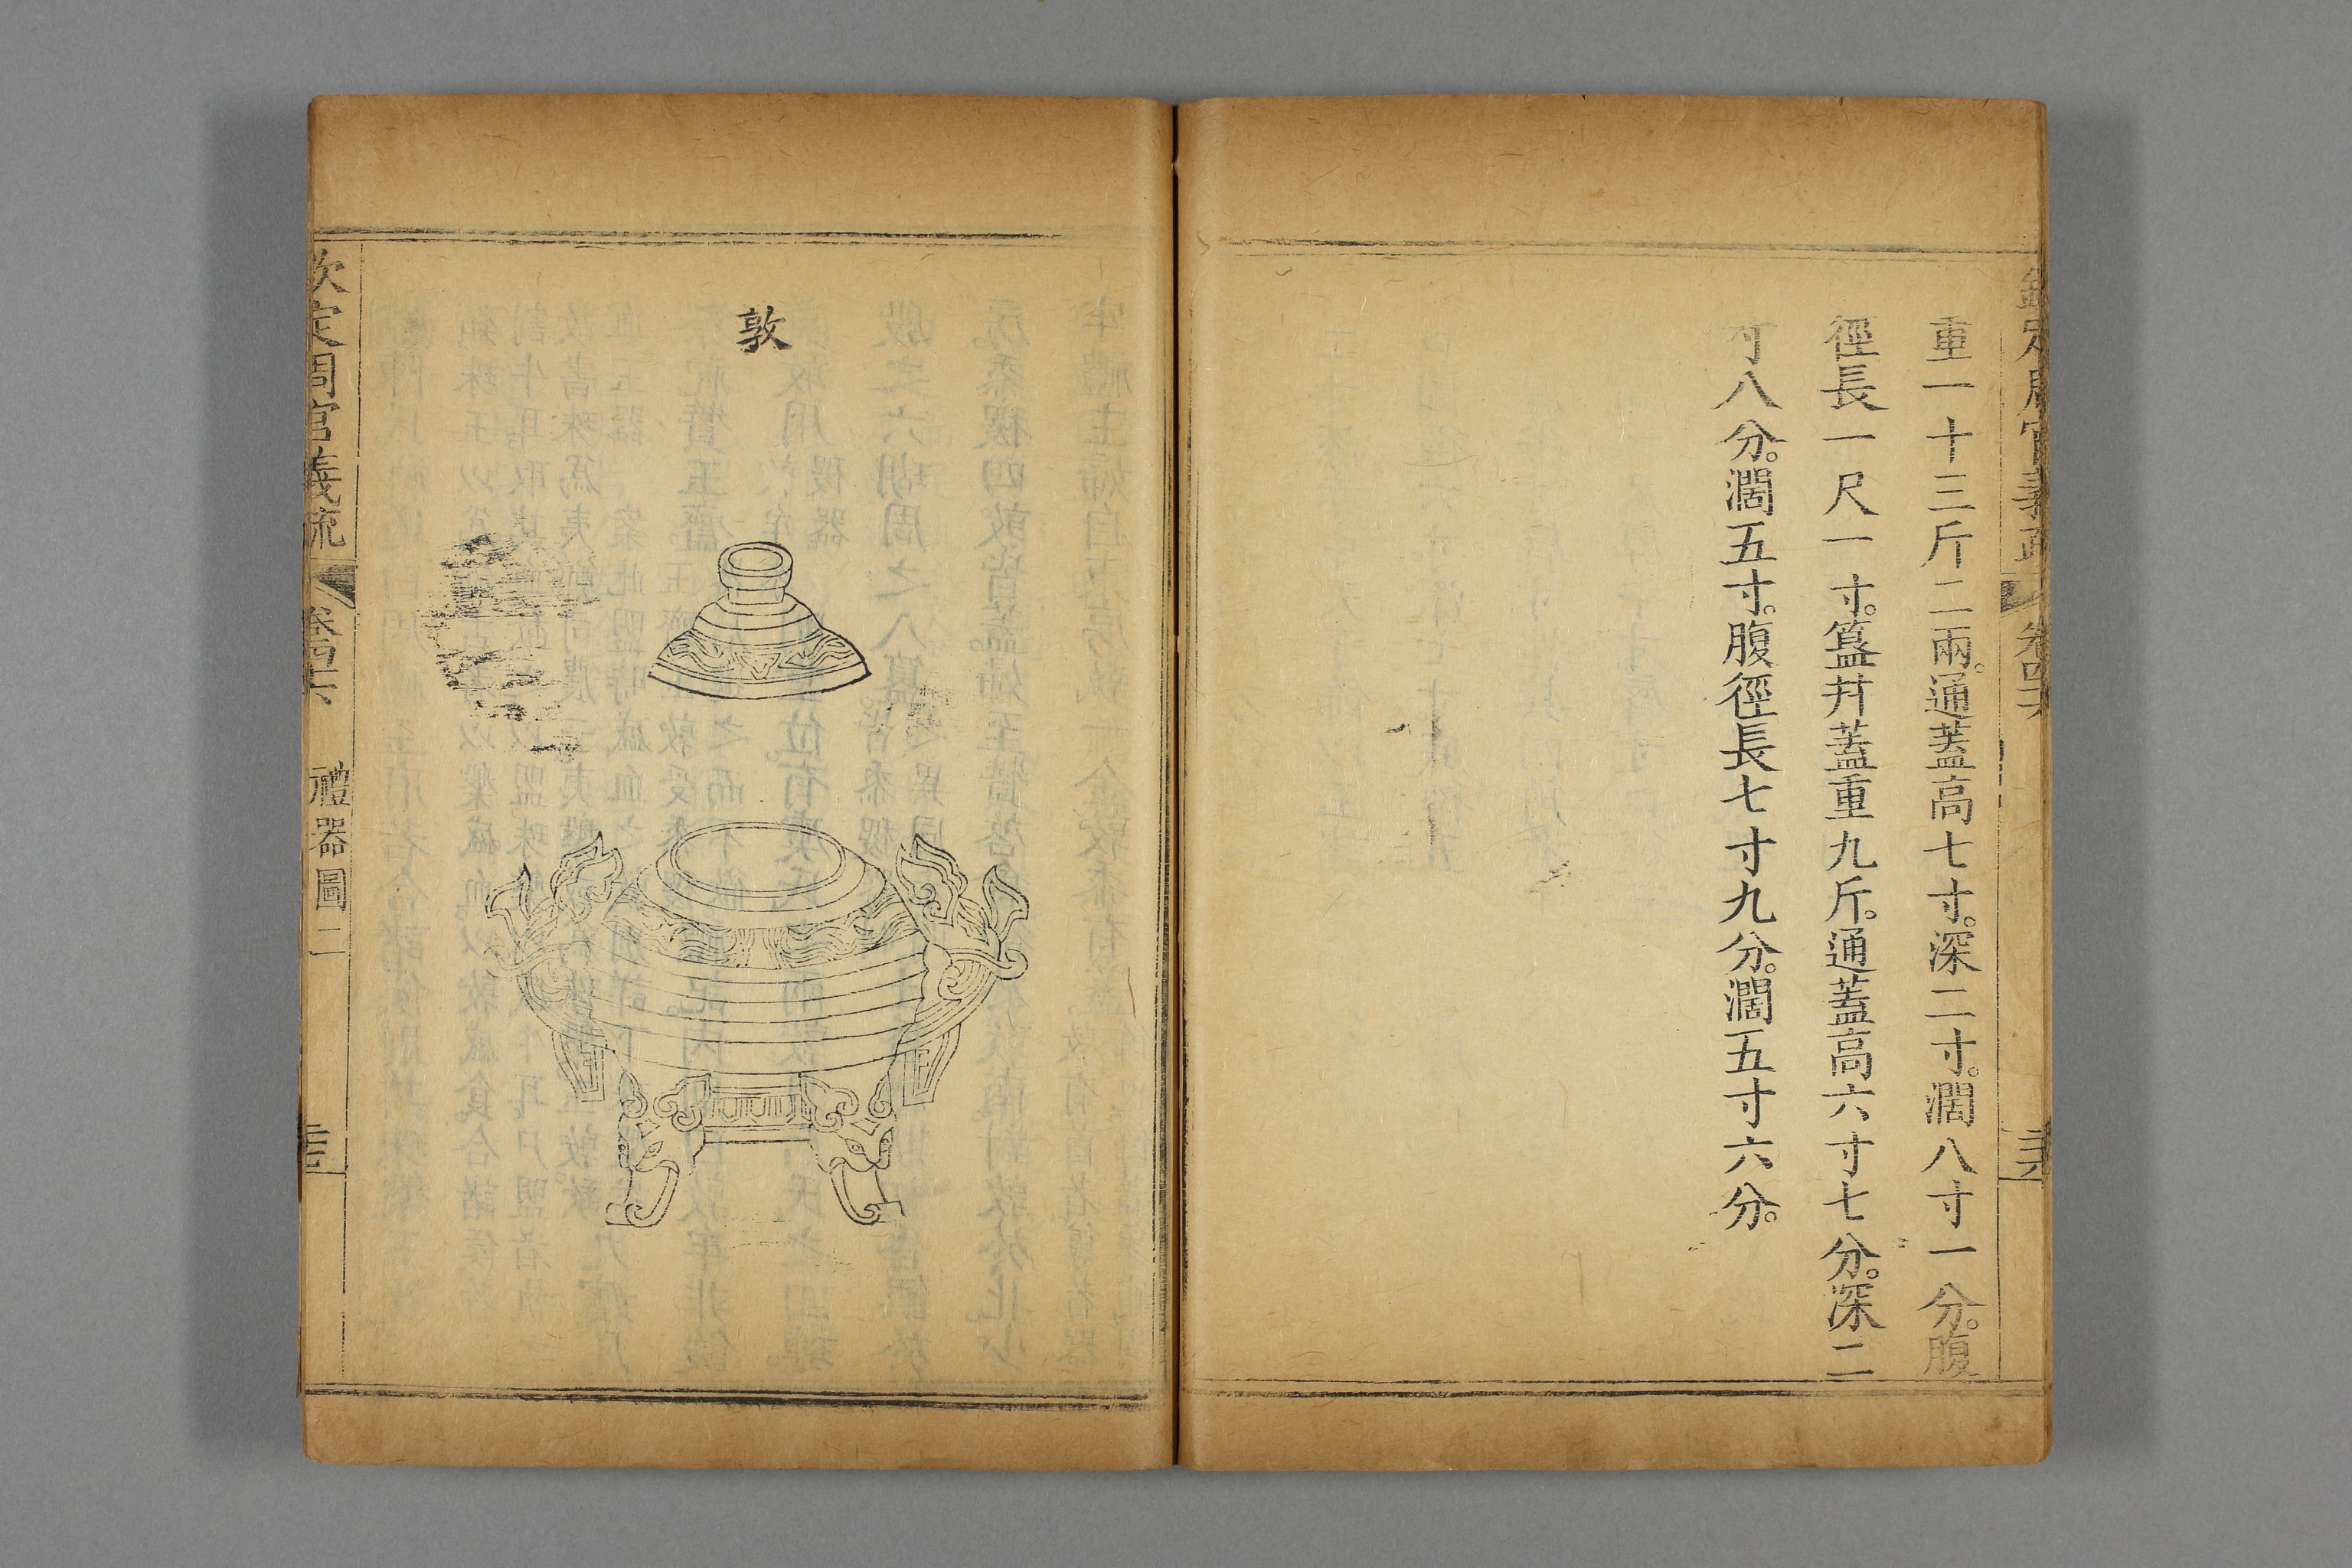 重一十三斤二兩。通蓋高七寸。深二寸。濶八寸一分。腹
徑長一尺一寸。簋幷蓋重九斤。通蓋高六寸七分。深二
寸八分。濶五寸。腹徑長七寸九分。濶五寸六分。
敦
欽定周官義疏 卷四十六 禮器圖二